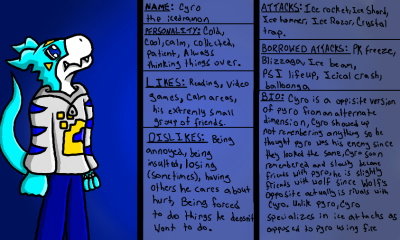 NAME: Cyro
the icedramon
PERSONALITY: Cold,
Cool, calm, collected,
patient, Always
thinking things over.
LIKES: Reading, Video
games, Calm areas,
his extremely small
group of friends.
DISLIKES: Being
annoyed, being
insulted, losing
(sometimes), having
others he cares about
hurt, Being forced
to do things he doesn't
want to do.
ATTACKS: Ice rocket, Ice Shard,
Ice hammer, Ice Razor, Crystal
trap.
BORROWED ATTACKS: PK freeze,
Blizzaga, Ice beam,
PSI lifeup, Icical crash,
BIO: Cyro is a opposite version
of pyro from an alternate
dimension, Cyro showed up
not remembering anything so he
thought pyro was his enemy since
they looked the same, Cyro soon
remembered and slowly became
friends with pyro, he is slightly
friends with wolf since Wolf's
opposite actually is rivals with
Cyro. Unlike pyro, Cyro
specializes in ice attacks as
opposed to pyro using fire